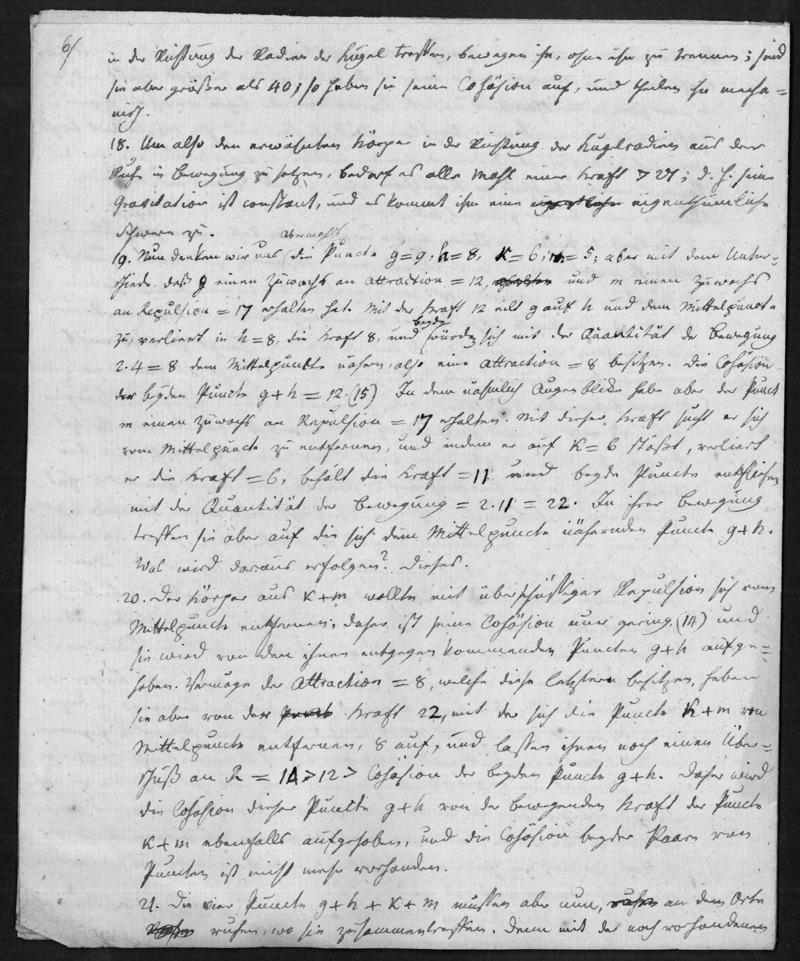 6/
in der Richtung der Radien der Kugel treffen, bewegen ihn, ohne ihn zu trennen; sind
sie aber größer als 40, so heben sie seine Cohäsion auf, und theilen ihn mecha=
nisch.
18. Um also den erwähnten Körper in der Richtung der Kugelradien aus der
Ruhe in Bewegung zu setzen, bedarf es alle Mahl einer Kraft > 27; d. h. seine
Gravitation ist constant, und es kommt ihm eine eigenthümliche
Schwere zu.
abermahls
19. Nun denken wir uns die Puncte g=9, h=8, K=6, m=5; aber mit dem Unter=
schiede, daß g einen Zuwachs an Attraction = 12, und m einen Zuwachs
an Repulsion = 17 erhalten hat. Mit der Kraft 12 eilt g auf h und dem Mittelpuncte
zu, verliert in h=8, die Kraft 8, und beyde würden sich mit der Quantität der Bewegung
2.4=8 dem Mittelpuncte nähern, also eine Attraction = 8 besitzen. Die Cohäsion
der beyden Puncte g+h = 12.(15) In dem nähmlich Augenblicke habe aber der Punct
m einen Zuwachs an Repulsion = 17 erhalten. Mit dieser Kraft sucht er sich
vom Mittelpuncte zu entfernen, und indem er auf K=6 stößt, verliert
er die Kraft =6, behält die Kraft =11 und beyde Puncte entfliehen
mit der Quantität der Bewegung = 2.11 = 22. In ihrer Bewegung
treffen sie aber auf die sich dem Mittelpuncte nähernden Puncte g+h.
Was wird daraus erfolgen? Dieses.
20. Der Körper aus K+m wollte mit überschüssiger Repulsion sich vom
Mittelpuncte entfernen; daher ist seine Cohäsion nur gering (14) und
sie wird von den ihnen entgegen kommenden Puncten g+h aufge=
hoben. Vermöge der Attraction = 8, welche diese letztern besitzen, heben
sie aber von der Kraft 22, mit der sich die Puncte K+m vom
Mittelpuncte entfernen, 8 auf, und lassen ihnen noch einen Über=
schuß an R = 14 > 12 > Cohäsion der beyden Puncte g+h. Daher wird
die Cohäsion dieser Puncte g+h von der bewegenden Kraft der Puncte
K+m ebenfalls aufgehoben, und die Cohäsion beyder Paare von
Puncten ist nicht mehr vorhanden.
21. Die vier Puncte g+h+K+m müssen aber nun, an dem Orte
ruhen, wo sie zusammentreffen. Denn mit der noch vorhandenen